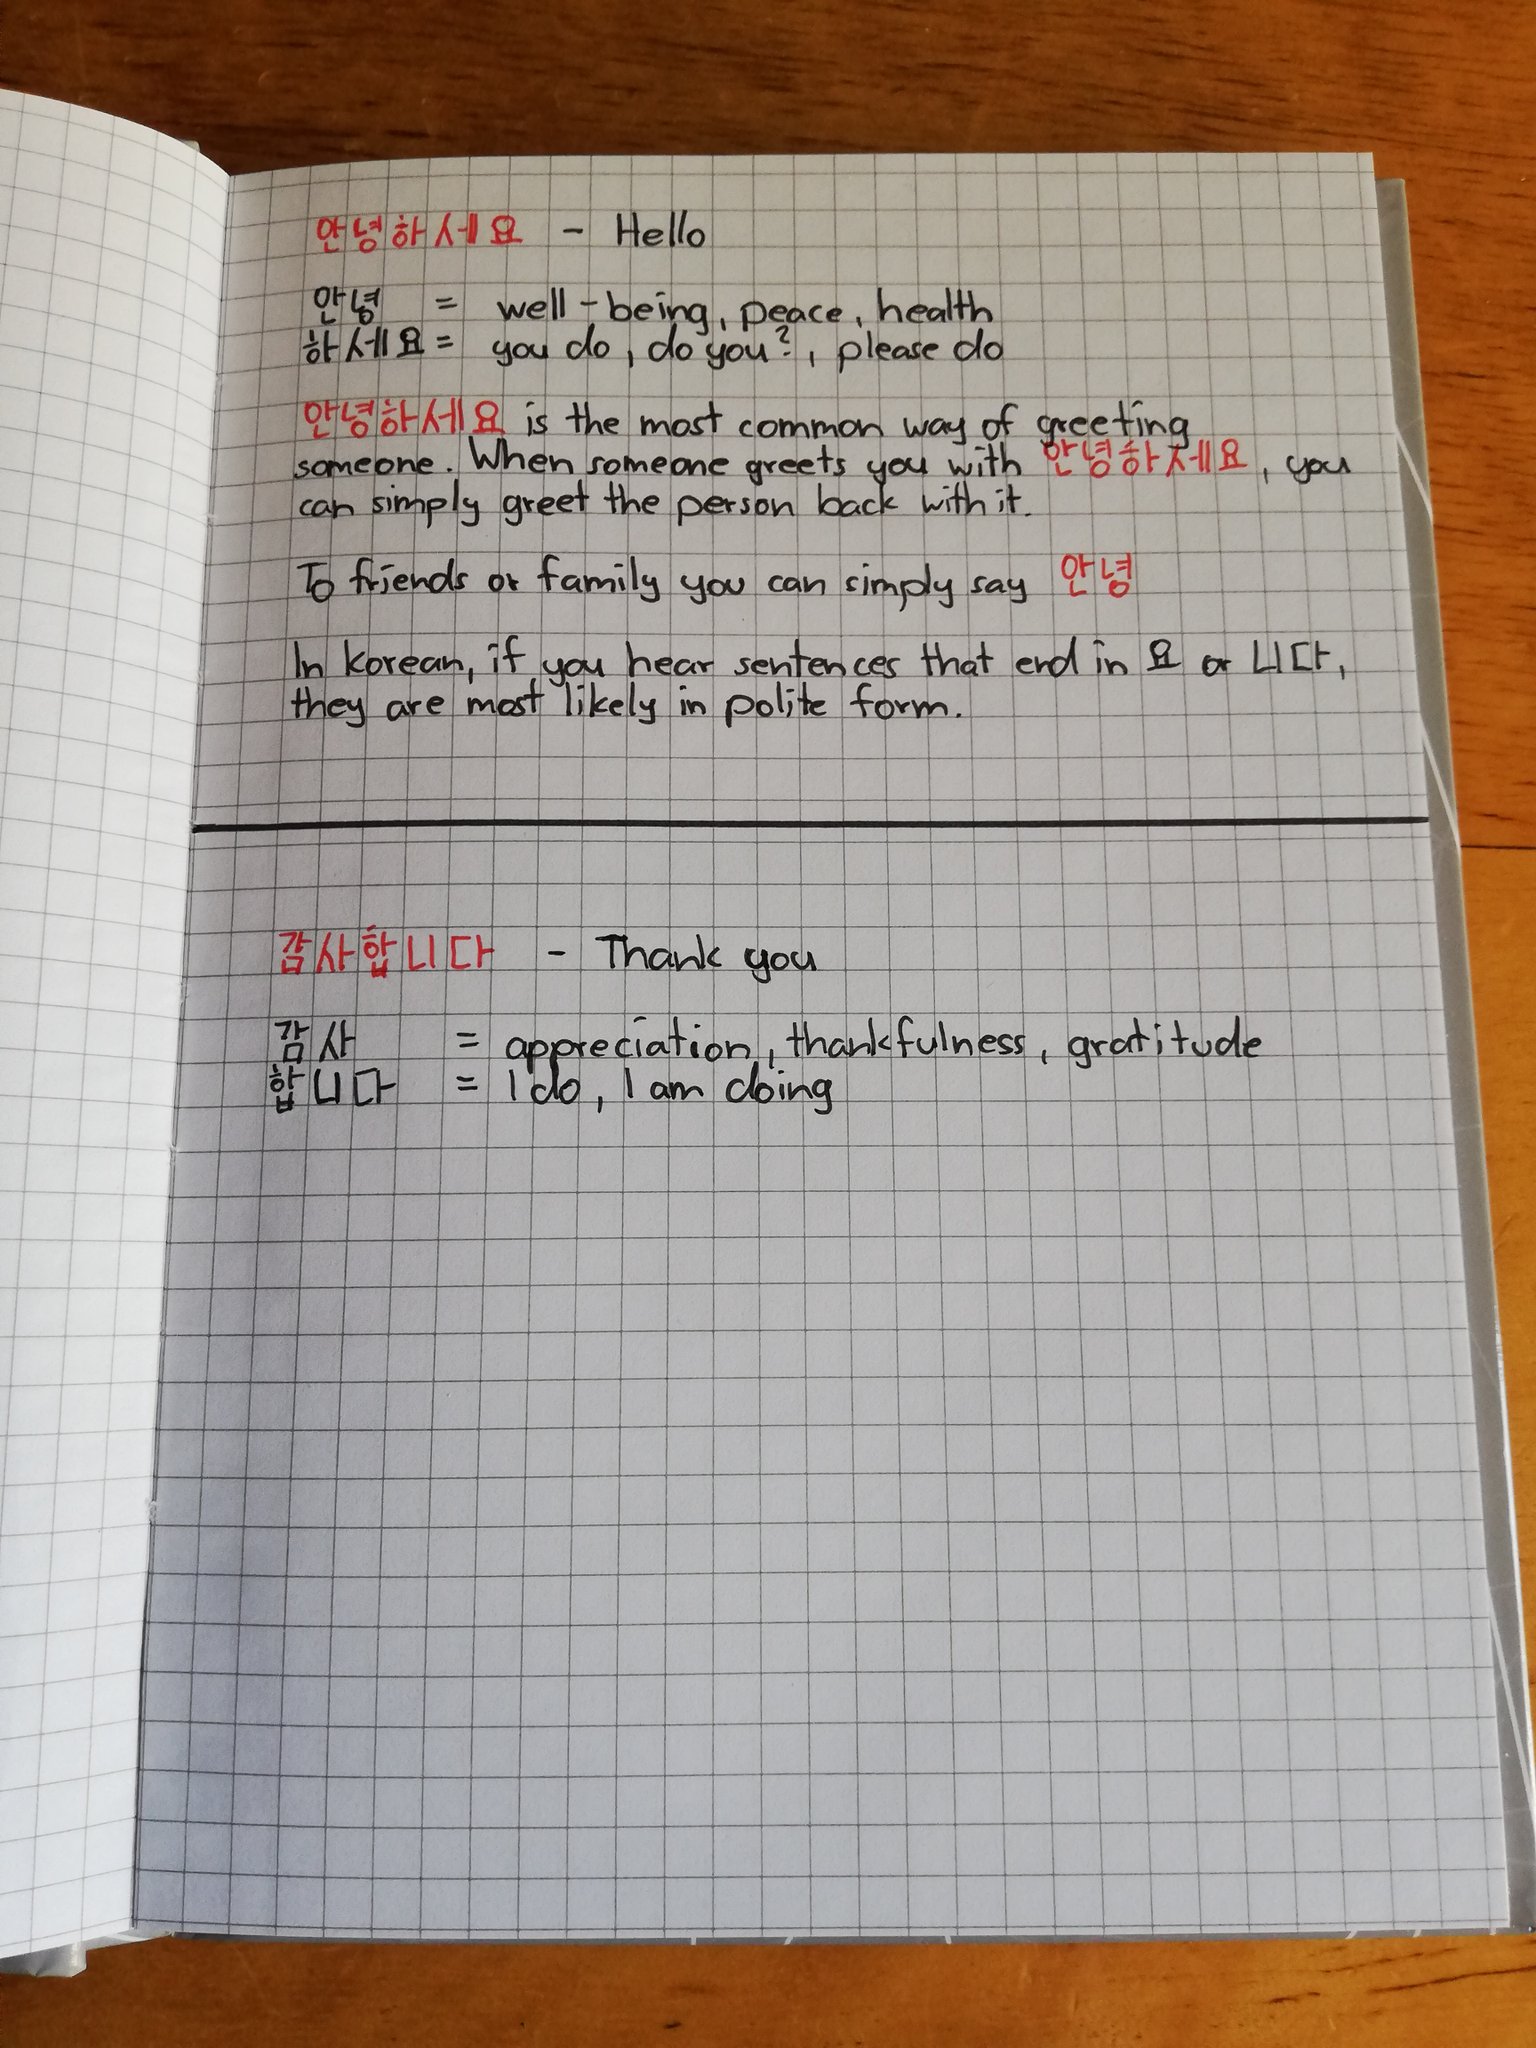 안녕하세요 - Hello
안녕 = well-being, peace, health
하세요 = you do, do you?, please do
안녕하세요 is the most common way of greeting
someone. When someone greets you with 안녕하세요, you
can simply greet the person back with it.
To friends or family you can simply say 안녕
In Korean, if you hear sentences that end in 요 or 니다,
they are most likely in polite form.
감사합니다 - Thank you
감사 = appreciation, thankfulness, gratitude
합니다 = I do, I am doing